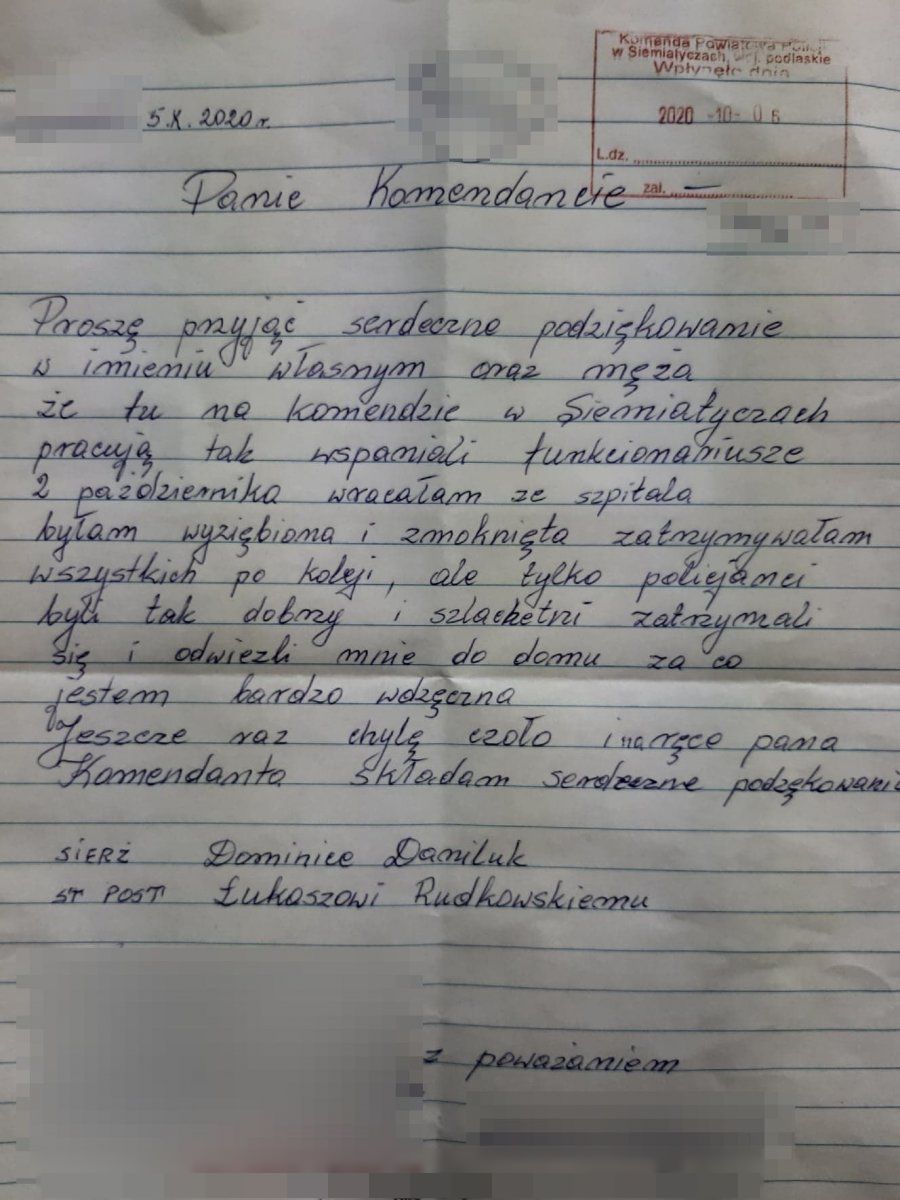 Komenda Powiatowa Policji
w Siemiatyczach, woj. podlaskie
Wpłynęło dnia
2020 -10- 06
L.dz.
zał. —
5.X.2020r.
Panie Komendancie
Proszę przyjąć serdeczne podziękowanie
w imieniu własnym oraz męża
że tu na komendzie w Siemiatyczach
pracują tak wspaniali funkcionariusze
2 października wracałam ze szpitala
byłam wyziębiona i zmoknięta zatrzymywałam
wszystkich po koleji, ale tylko policjanci
byli tak dobrzy i szlachetni zatrzymali
się i odwiezli mnie do domu za co
jestem bardzo wdzęczna
Jeszcze raz chylę czoło i na ręce pana
Komendanta składam serdeczne podzękowani
SIERŻ Dominice Daniluk
ST POST Łukaszowi Rudkowskiemu
z poważaniem